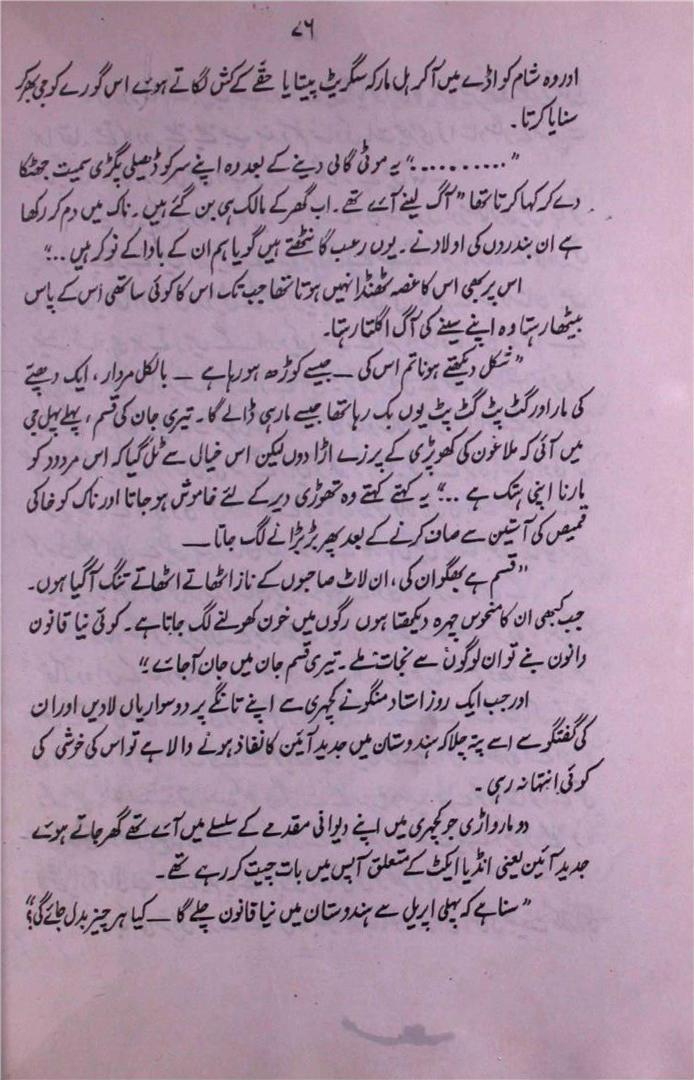 ۷۶
اور وہ شام کو اڈے میں آکر ہل مارکہ سگریٹ پیتا یا حقّے کے کش لگاتے ہوئے اس گورے کو جی بھر کر
سنایا کرتا۔
”..........“ یہ موٹی گالی دینے کے بعد وہ اپنے سر کو ڈھیلی پگڑی سمیت جھٹکا
دے کر کہا کرتا تھا ”آگ لینے آئے تھے۔ اب گھر کے مالک ہی بن گئے ہیں۔ ناک میں دم کر رکھا
ہے ان بندروں کی اولاد نے۔ یوں رعب گانٹھتے ہیں گویا ہم ان کے باوا کے نوکر ہیں ..“
اس پر بھی اس کا غصہ ٹھنڈا نہیں ہوتا تھا جب تک اس کا کوئی ساتھی اس کے پاس
بیٹھا رہتا وہ اپنے سینے کی آگ اگلتا رہتا۔
”شکل دیکھتے ہو نا تم اس کی — جیسے کوڑھ ہو رہا ہے — بالکل مردار، ایک دھپے
کی مار اور گٹ پٹ گٹ پٹ یوں بک رہا تھا جیسے مار ہی ڈالے گا۔ تیری جان کی قسم، پہلے پہل جی
میں آئی کہ ملاعون کی کھوپڑی کے پرزے اڑا دوں لیکن اس خیال سے ٹل گیا کہ اس مردود کو
مارنا اپنی ہتک ہے ..“ یہ کہتے کہتے وہ تھوڑی دیر کے لئے خاموش ہو جاتا اور ناک کو خاکی
قمیص کی آستین سے صاف کرنے کے بعد پھر بڑبڑانے لگ جاتا —
”قسم ہے بھگوان کی، ان لاٹ صاحبوں کے ناز اٹھاتے اٹھاتے تنگ آگیا ہوں۔
جب کبھی ان کا منحوس چہرہ دیکھتا ہوں رگوں میں خون کھولنے لگ جاتا ہے۔ کوئی نیا قانون
وانون بنے تو ان لوگوں سے نجات ملے۔ تیری قسم جان میں جان آجائے۔“
اور جب ایک روز استاد منگو نے کچہری سے اپنے تانگے پر دو سواریاں لادیں اور ان
کی گفتگو سے اسے پتہ چلا کہ ہندوستان میں جدید آئین کا نفاذ ہونے والا ہے تو اس کی خوشی کی
کوئی انتہا نہ رہی۔
دو مارواڑی جو کچہری میں اپنے دیوانی مقدمے کے سلسلے میں آئے تھے گھر جاتے ہوئے
جدید آئین یعنی انڈیا ایکٹ کے متعلق آپس میں بات چیت کر رہے تھے۔
”سنا ہے کہ پہلی اپریل سے ہندوستان میں نیا قانون چلے گا — کیا ہر چیز بدل جائے گی؟“